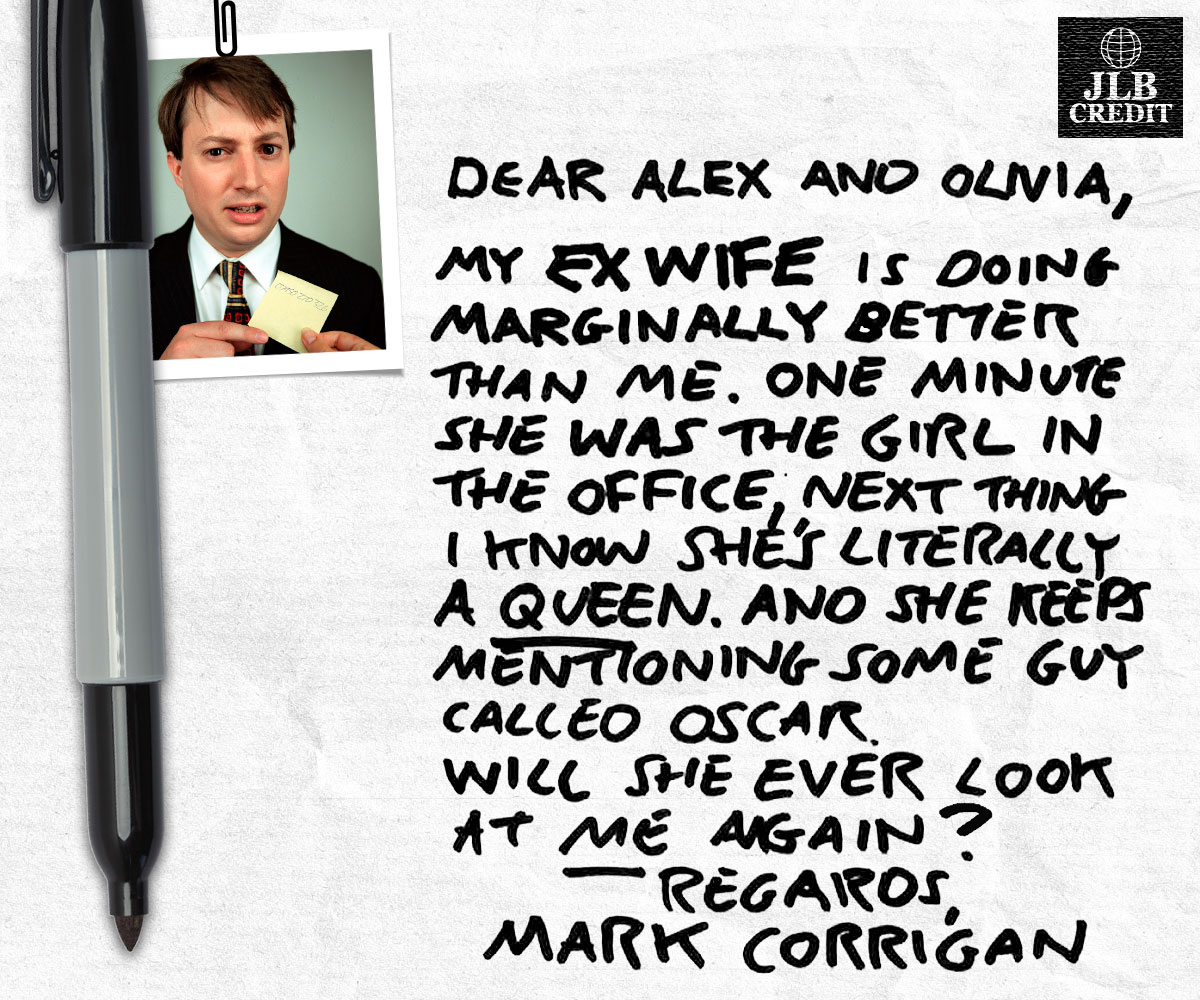 JLB
CREDIT
DEAR ALEX AND OLIVIA,
MY EX WIFE IS DOING
MARGINALLY BETTER
THAN ME. ONE MINUTE
SHE WAS THE GIRL IN
THE OFFICE, NEXT THING
I KNOW SHE'S LITERALLY
A QUEEN. AND SHE KEEPS
MENTIONING SOME GUY
CALLED OSCAR.
WILL SHE EVER LOOK
AT ME AGAIN?
REGARDS,
MARK CORRIGAN